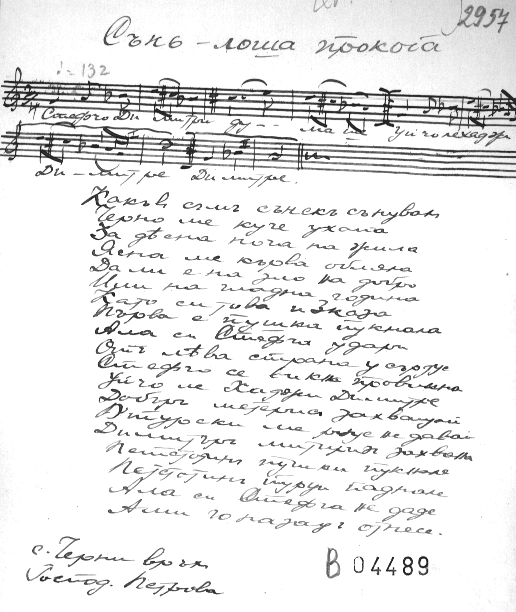 2957
Сънь – лоша прокоба
♩ = 132
Стефчо Ди – митри ду - - ма ше Уйчо ле хадъри
Ди – митре Димитре.
Какъв съмъ сънекъ сънувалъ
Черно ме куче ухапа
За дѣсна нога на жила
Ясна ме кърва обляна
Дали е на зло на добро
Или на гладна година
Като си това изказа
Първа е пушка пукнала
Ала си Стефча удари
Отъ лѣва страна у сърдце
Стефчо се викна провикна
Уйчо ле Хадъри Димитре
Добъръ метеризъ захващай
Турски ме рѫце не давай
Димитъръ метеризъ захвана
Петстотинъ пушки пукнале
Петстотинъ турци паднале
Ала си Стефча не даде
Ами го назадъ отнесе.
с. Черни връхъ
Господ. Петрова
В 04489